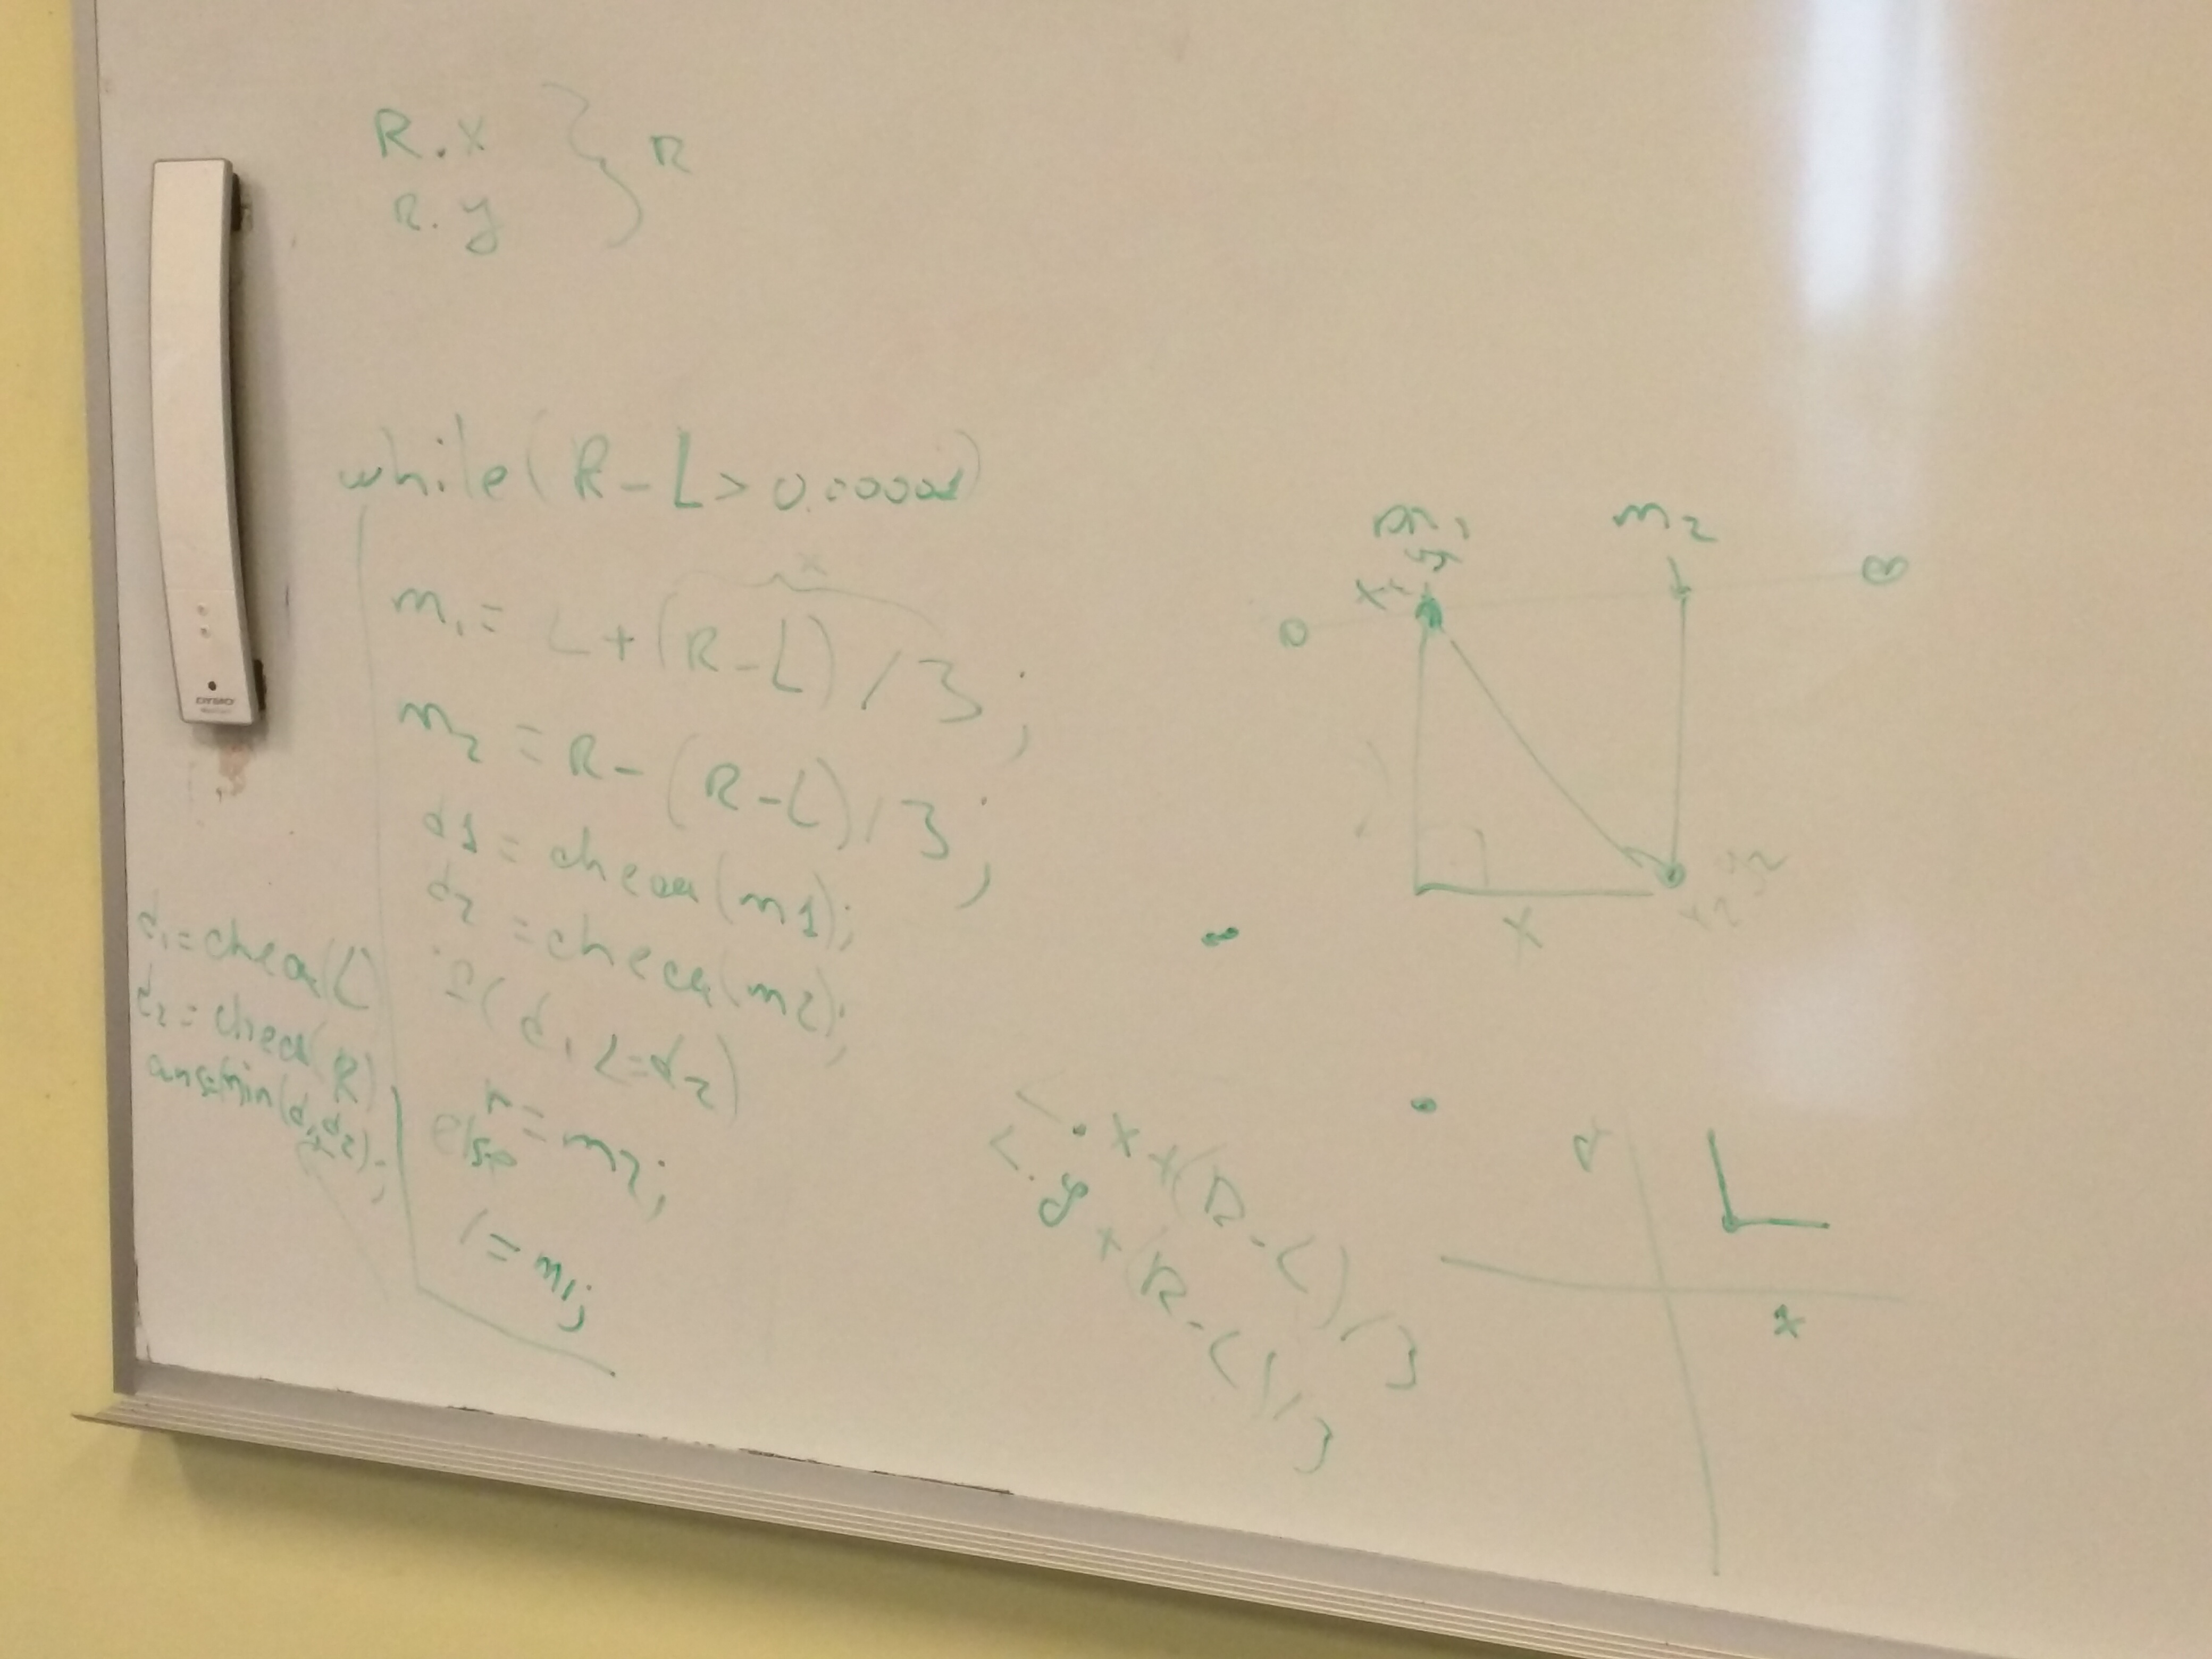 R.x
R.y
R
while(R-L>0.00001)
x
m1= L+(R-L)/3;
m2=R-(R-L)/3;
d1=check(m1);
d2=check(m2);
if(d1<=d2)
r=m2;
else
l=m1;
d1=check(L)
d2=check(R)
ans=min(d1,d2);
m1
m2
x
L.x+(R-L)/3
L.y+(R-L)/3
x
DYMO